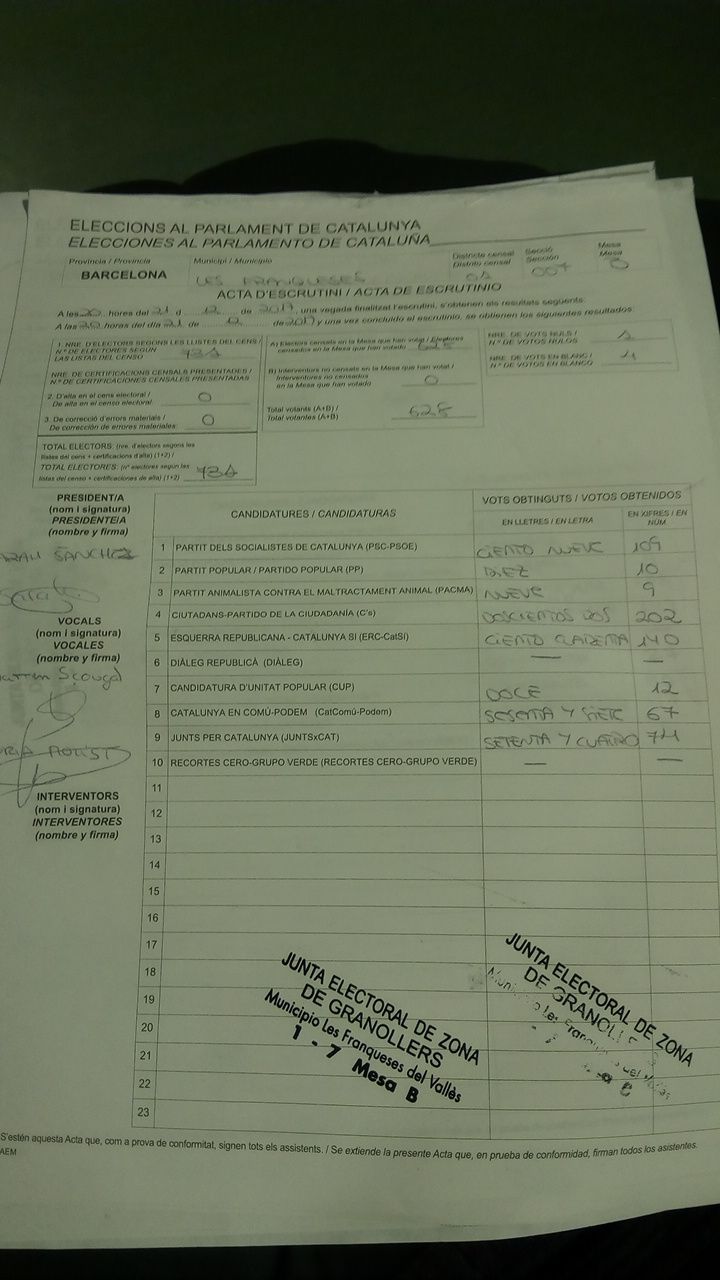 ELECCIONS AL PARLAMENT DE CATALUNYA
ELECCIONES AL PARLAMENTO DE CATALUÑA
Província / Provincia Municipi / Municipio Districte censal Secció Mesa
Distrito censal Sección Mesa
BARCELONA LES FRANQUESES 007 B
ACTA D'ESCRUTINI / ACTA DE ESCRUTINIO
A les 20 hores del 21 d 12 de 2017, una vegada finalitzat l'escrutini, s'obtenen els resultats següents:
A las 20 horas del día 21 de 12 de 2017 y una vez concluido el escrutinio, se obtienen los siguientes resultados:
1. NRE. D'ELECTORS SEGONS LES LLISTES DEL CENS /
Nº DE ELECTORES SEGÚN
LAS LISTAS DEL CENSO
NRE. DE CERTIFICACIONS CENSALS PRESENTADES /
Nº DE CERTIFICACIONES CENSALES PRESENTADAS
2. D'alta en el cens electoral / 0
De alta en el censo electoral
3. De correcció d'errors materials / 0
De corrección de errores materiales
TOTAL ELECTORS: (nre. d'electors segons les
llistes del cens + certificacions d'alta) (1+2) /
TOTAL ELECTORES: (nº electores según las
listas del censo + certificaciones de alta) (1+2)
A) Electors censats en la Mesa que han votat / Electores
censados en la Mesa que han votado
B) Interventors no censats en la Mesa que han votat /
Interventores no censados
en la Mesa que han votado 0
Total votants (A+B) / 628
Total votantes (A+B)
NRE. DE VOTS NULS /
Nº DE VOTOS NULOS
NRE. DE VOTS EN BLANC /
Nº DE VOTOS EN BLANCO
PRESIDENT/A
(nom i signatura)
PRESIDENTE/A
(nombre y firma)
SANCHEZ
VOCALS
(nom i signatura)
VOCALES
(nombre y firma)
INTERVENTORS
(nom i signatura)
INTERVENTORES
(nombre y firma)
CANDIDATURES / CANDIDATURAS VOTS OBTINGUTS / VOTOS OBTENIDOS
EN LLETRES / EN LETRA EN XIFRES / EN NÚM.
1 PARTIT DELS SOCIALISTES DE CATALUNYA (PSC-PSOE) CIENTO NUEVE 109
2 PARTIT POPULAR / PARTIDO POPULAR (PP) DIEZ 10
3 PARTIT ANIMALISTA CONTRA EL MALTRACTAMENT ANIMAL (PACMA) NUEVE 9
4 CIUTADANS-PARTIDO DE LA CIUDADANÍA (C's) DOSCIENTOS DOS 202
5 ESQUERRA REPUBLICANA - CATALUNYA SI (ERC-CatSí) CIENTO 140
6 DIÀLEG REPUBLICÀ (DIÀLEG) — —
7 CANDIDATURA D'UNITAT POPULAR (CUP) DOCE 12
8 CATALUNYA EN COMÚ-PODEM (CatComú-Podem) SESENTA Y SIETE 67
9 JUNTS PER CATALUNYA (JUNTSxCAT) SETENTA Y CUATRO 74
10 RECORTES CERO-GRUPO VERDE (RECORTES CERO-GRUPO VERDE) — —
11
12
13
14
15
16
17
18
19
20
21
22
23
JUNTA ELECTORAL DE ZONA
DE GRANOLLERS
Municipio Les Franqueses del Vallès
1 - 7 Mesa B
JUNTA ELECTORAL DE ZONA
DE GRANOLLERS
S'estén aquesta Acta que, com a prova de conformitat, signen tots els assistents. / Se extiende la presente Acta que, en prueba de conformidad, firman todos los asistentes.
AEM